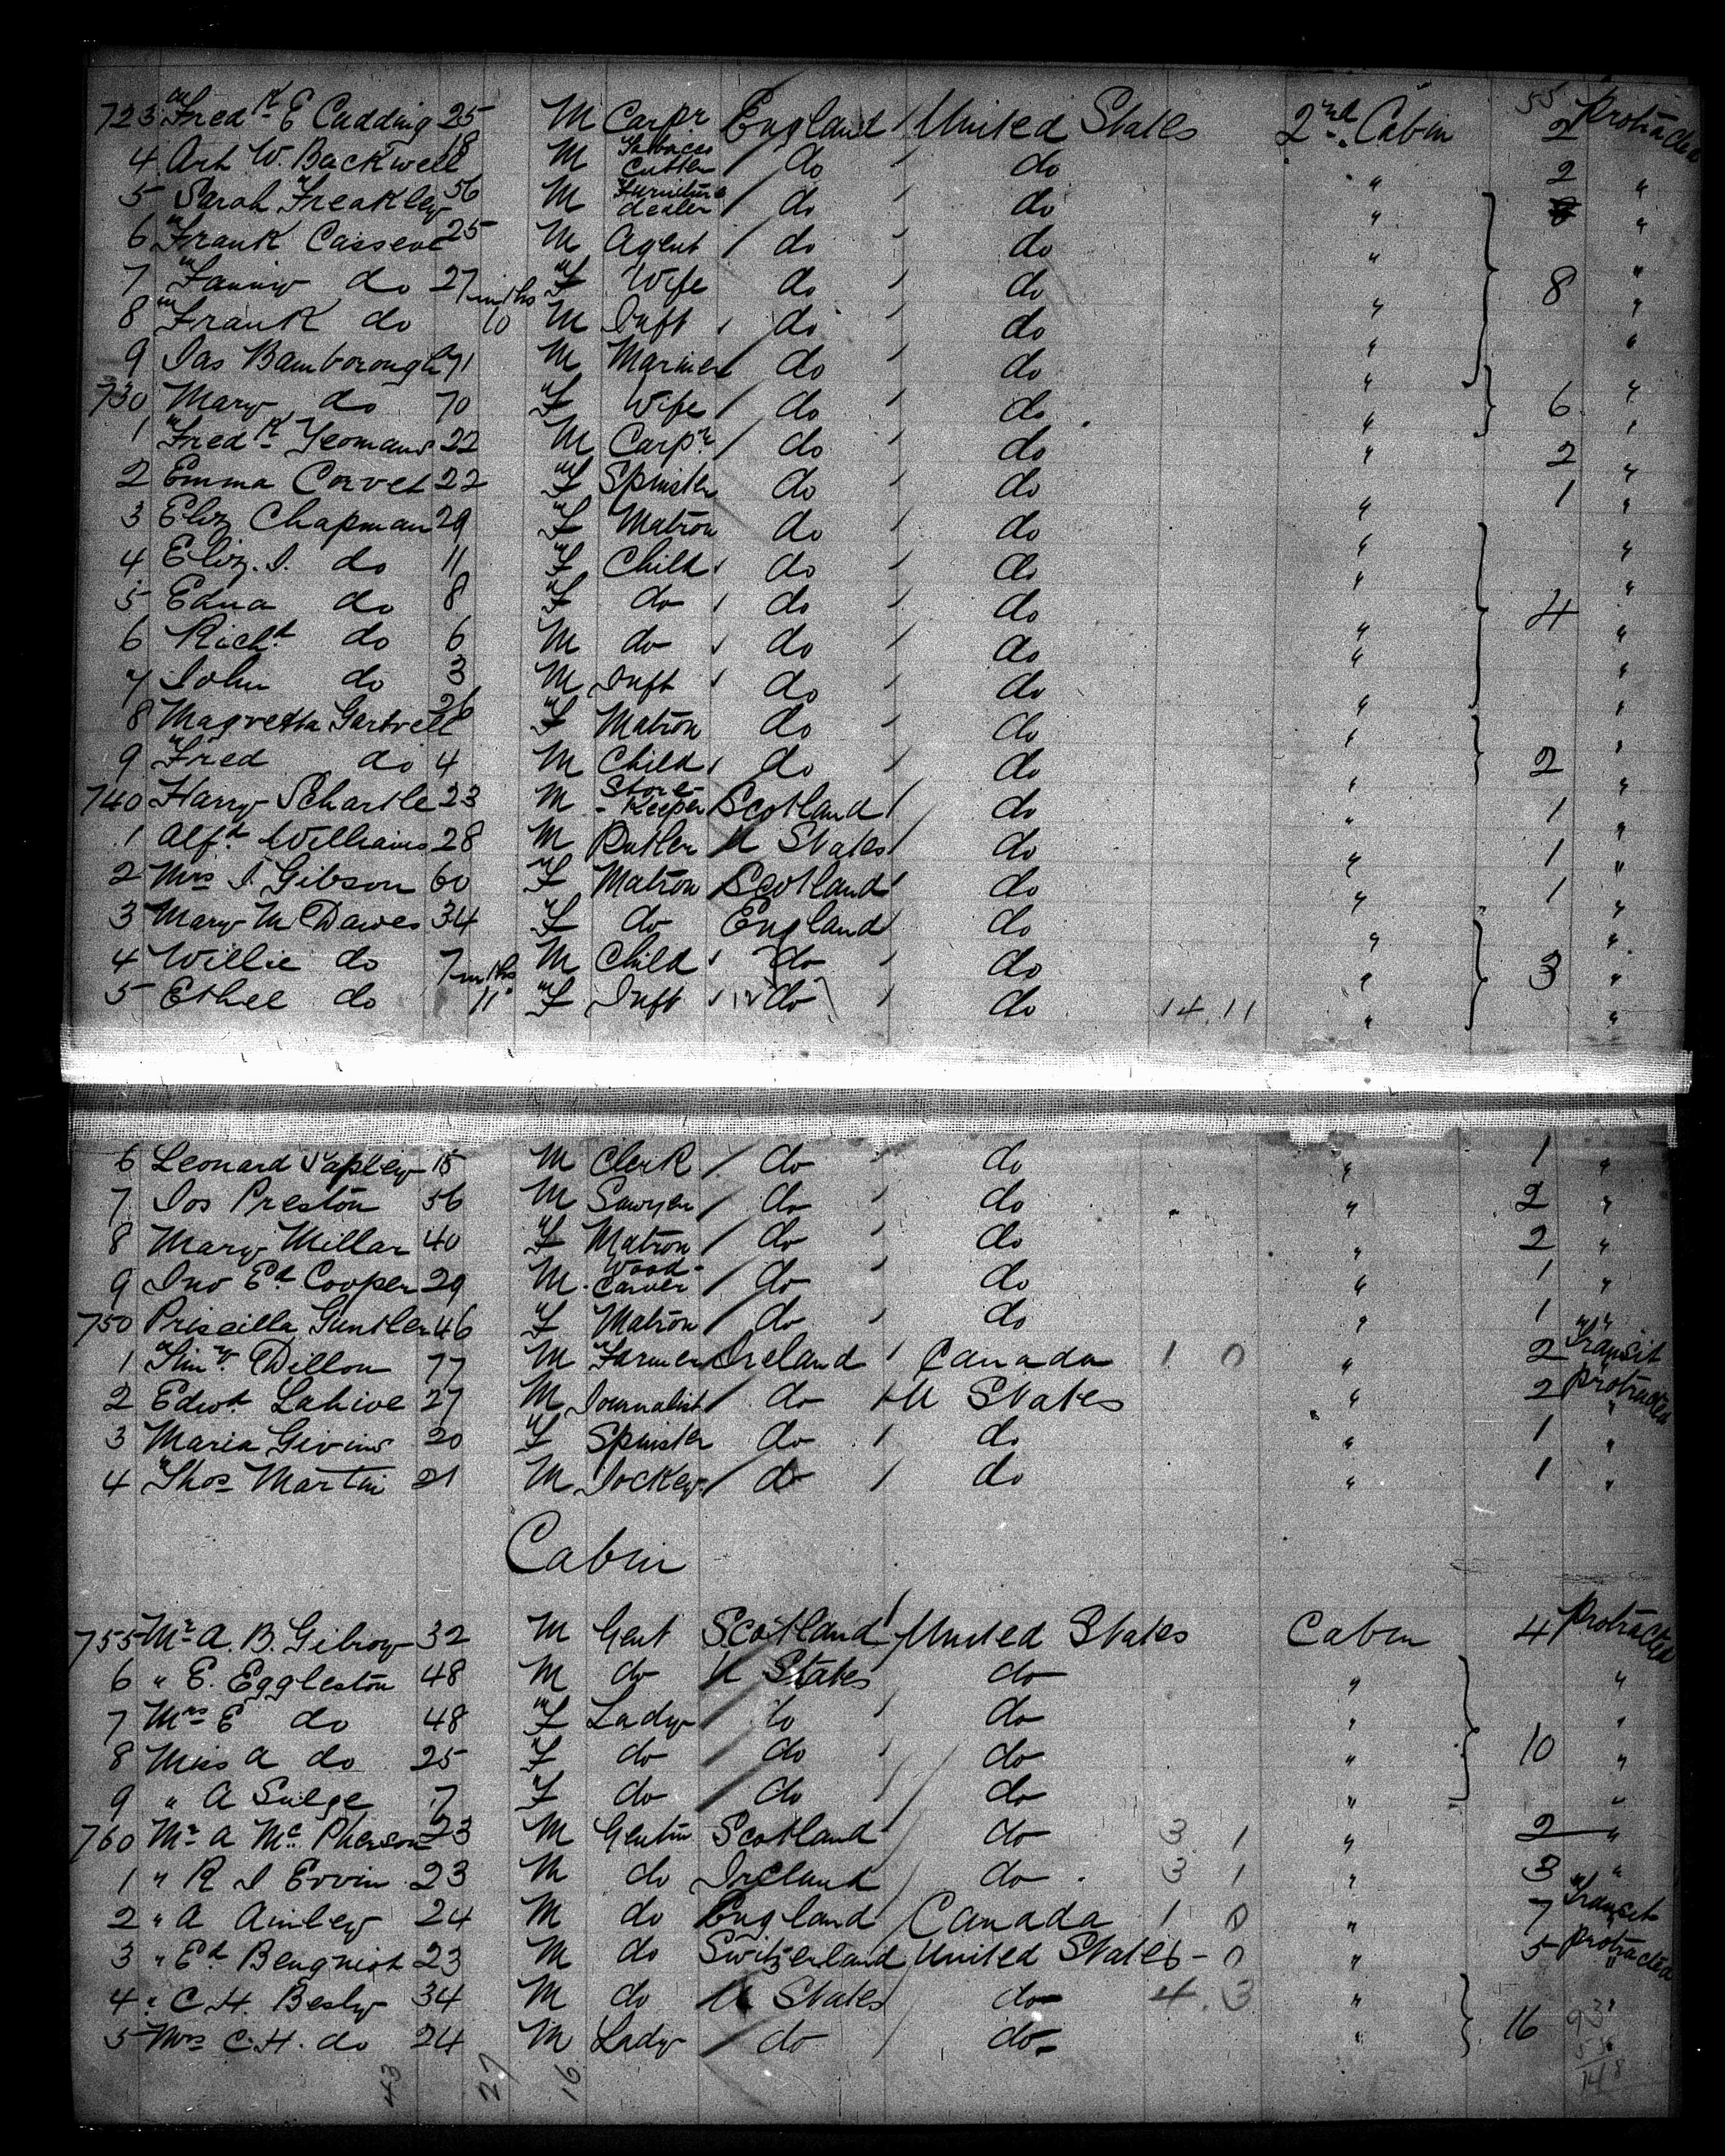 55
723 Fredk E Cudding 25 M Carpr England United States 2nd Cabin 2 Protracted
4 Art W. Backwell 18 M Tobacco Cutter do do " 2 "
5 Sarah Freakley 56 M Furniture dealer do do " "
6 Frank 25 M Agent do do " "
7 Fanny do 27 F Wife do do " 8 "
8 Frank do mths 10 M Inft do do " "
9 Jas Bamborough 71 M Mariner do do " "
730 Mary do 70 F Wife do do " 6 "
1 Fredk Yeomans 22 M Carpr do do " 2 "
2 Emma Corvet 22 F Spinster do do " 1 "
3 Eliz Chapman 29 F Matron do do " "
4 Eliz. J. do 11 F Child do do " "
5 Edna do 8 F do do do " 4 "
6 Richd do 6 M do do do " "
7 John do 3 M Inft do do " "
8 Magretta Gartrell 26 F Matron do do " "
9 Fred do 4 M Child do do " 2 "
740 Harry Schartle 23 M Store-Keeper Scotland do " 1 "
1 Alfd Williams 28 M Butler U States do " 1 "
2 Mrs J. Gibson 60 F Matron Scotland do " 1 "
3 Mary M Dawes 34 F do England do " "
4 Willie do 7 M Child do do " 3 "
5 Ethel do mths 11 F Inft do do 14.11 " "
6 Leonard Tapley 15 M Clerk do do " 1 "
7 Jos Preston 56 M Sawyer do do " 2 "
8 Mary Millar 40 F Matron do do " 2 "
9 Jno Ed Cooper 29 M Wood-Carver do do " 1 "
750 Priscilla Guntler 46 F Matron do do " 1 "
1 Timy Dillon 77 M Farmer Ireland Canada 1 0 " 2 Transit
2 Edwd Lahive 27 M Journalist do U States " 2 Protracted
3 Maria Givins 20 F Spinster do do " 1 "
4 Thos Martin 21 M Jockey do do " 1 "
Cabin
755 Mr A. B. Gilroy 32 M Gent Scotland United States Cabin 4 Protracted
6 " E. Eggleston 48 M do U States do " "
7 Mrs E do 48 F Lady do do " "
8 Miss A do 25 F do do do " 10 "
9 " A 7 F do do do " "
760 Mr A McPherson 23 M Gentm Scotland do 3 1 " 2 "
1 " R J Ervin 23 M do Ireland do 3 1 " 3 "
2 " A Ainley 24 M do England Canada 1 0 " 7 Transit
3 " Ed Benguiat 23 M do Switzerland United States - 0 " 5 Protracted
4 " C. H. Besly 34 M do U States do 4.3 " "
5 Mrs C. H. do 24 M Lady do do " 16
43 27 16